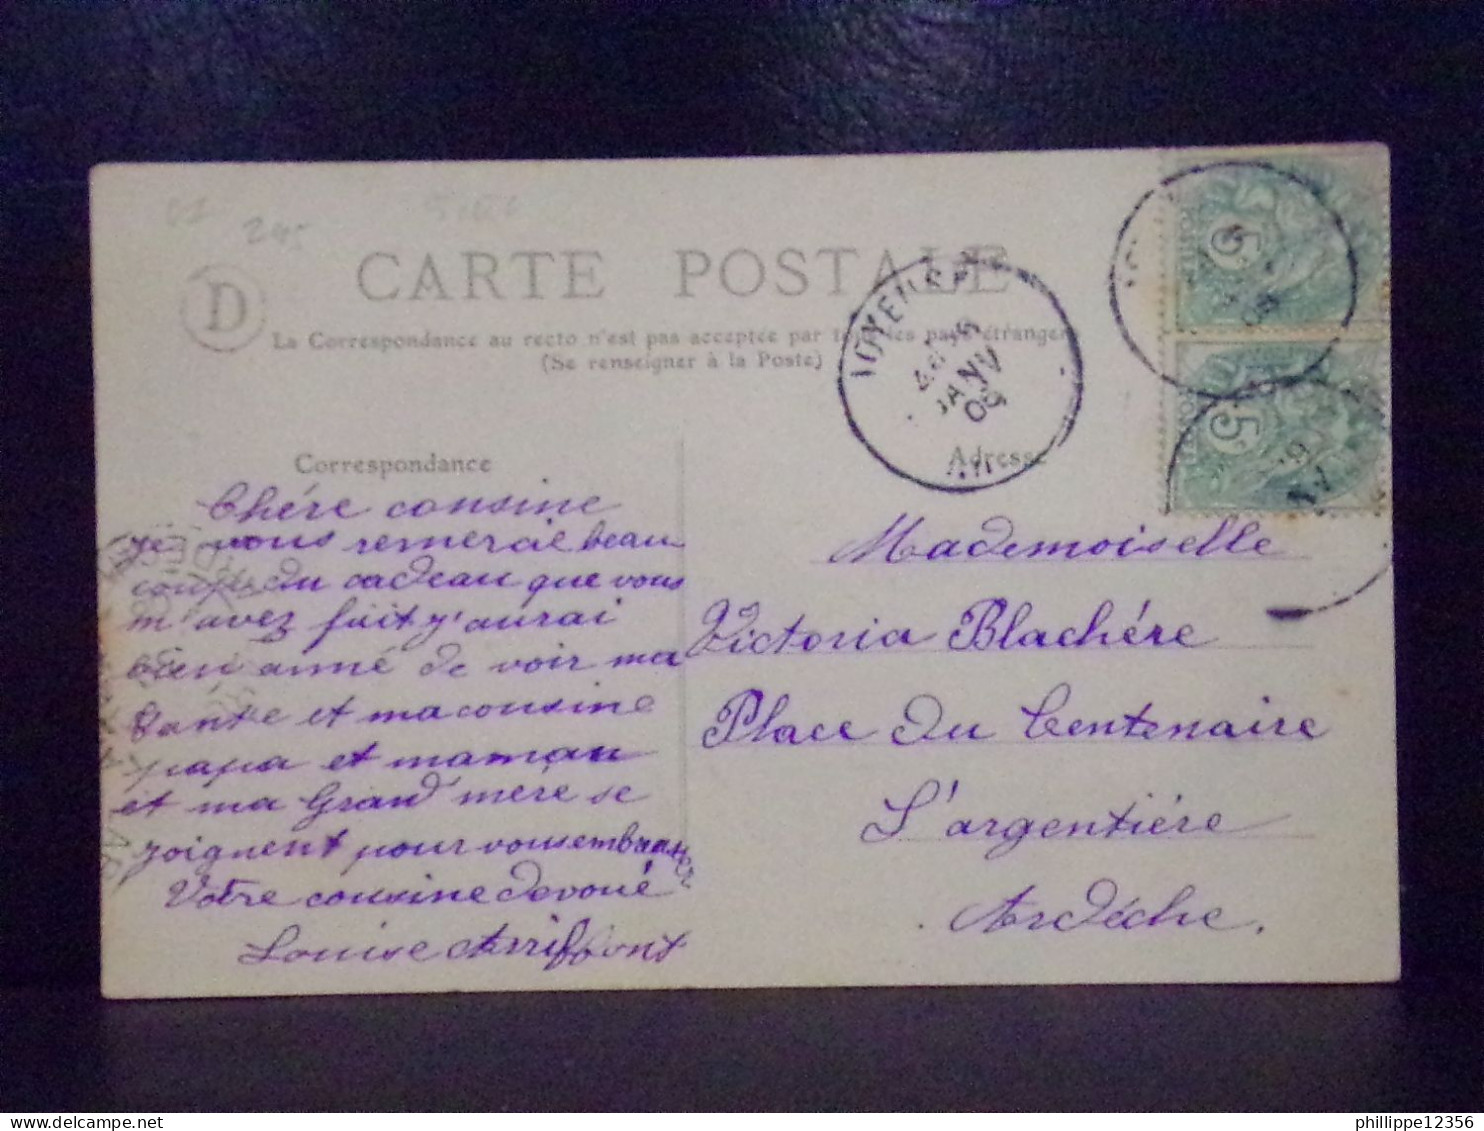 245
CARTE POSTALE
D
La Correspondance au recto n'est pas acceptée par tous les pays étrangers
(Se renseigner à la Poste)
JOYEUSE
JANV
09
5
5
Correspondance
Adresse
Chére cousine
je vous remercie beau
coup du cadeau que vous
m'avez fait j'aurai
bien aimé de voir ma
tante et ma cousine
papa et maman
et ma Grand'mére se
joignent pour vous embrasser
Votre cousine devoué
Louise
Mademoiselle
Victoria Blachére
Place du Centenaire
L'argentiére
Ardéche.
phillippe12356